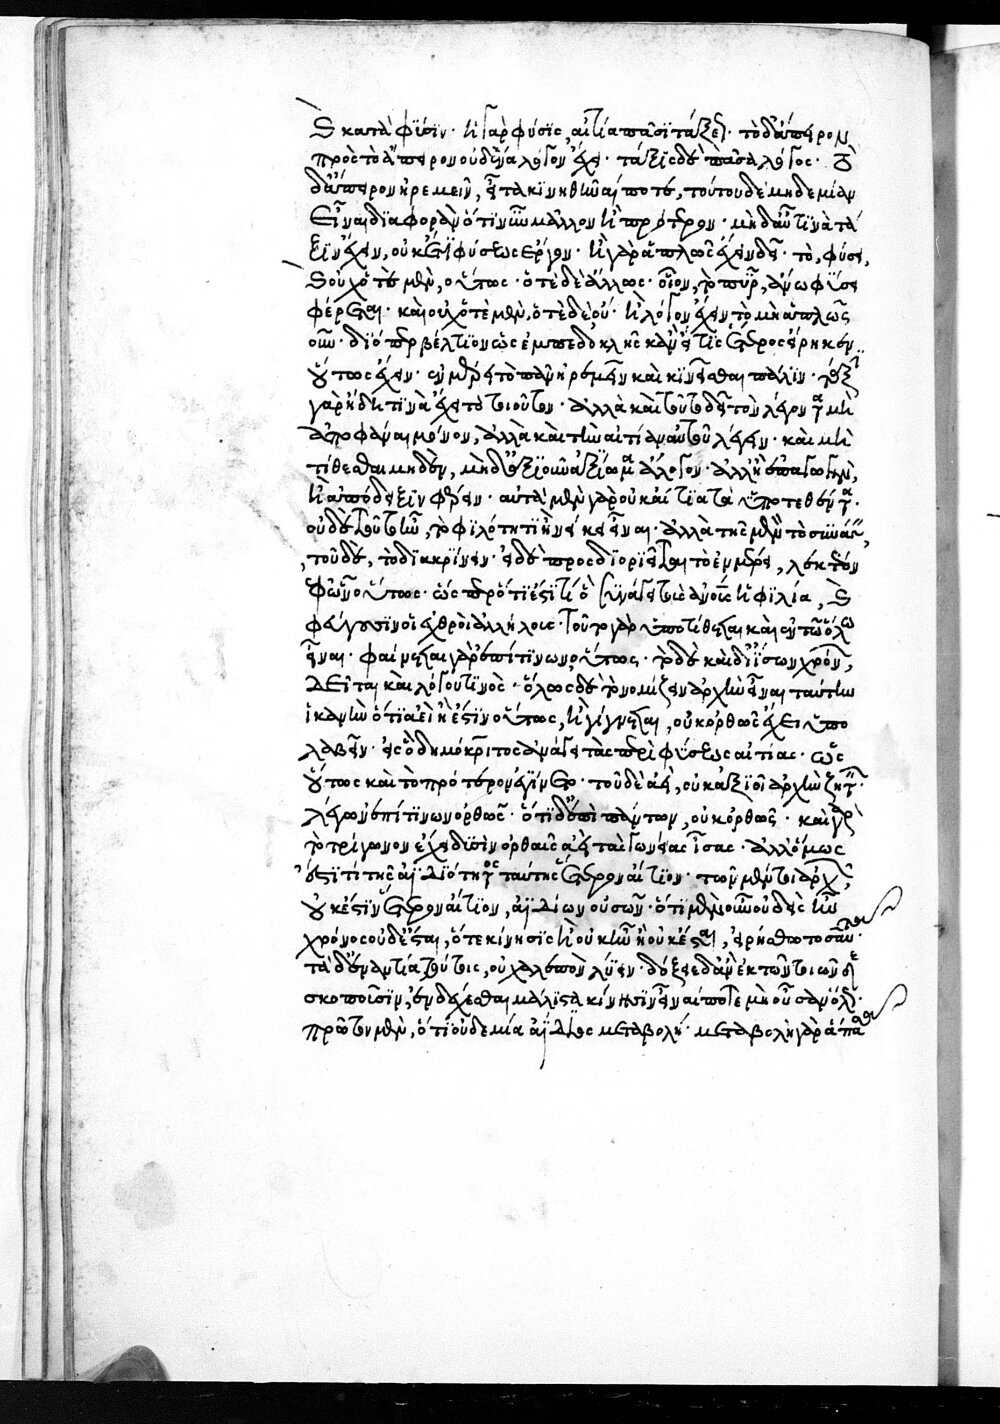 καὶ κατὰ φύσιν· ἡ γὰρ φύσις, αἰτία πᾶσι τάξεως· τὸ δ' ἄπειρον
πρὸς τὸ ἄπειρον οὐδένα λόγον ἔχει· τάξις δὲ πᾶσα λόγος· τὸ
δ' ἄπειρον ἠρεμεῖν, εἶτα κινηθῆναί ποτε, τούτου δὲ μηδεμίαν
εἶναι διαφορὰν ὅτι νῦν μᾶλλον ἢ πρότερον· μηδ' αὖ τινὰ τά
ξιν ἔχειν, οὐκέτι φύσεως ἔργον· ἢ γὰρ ἁπλῶς ἔχειν δεῖ τὸ φύσει,
καὶ οὐχ ὁτὲ μὲν, οὕτως· ὁτὲ δὲ ἄλλως· οἷον, τὸ πῦρ, ἄνω φύσει
φέρεται· καὶ οὐχ ὁτὲ μὲν, ὁτὲ δὲ οὔ· ἢ λόγον ἔχειν τὸ μὴ ἁπλῶς
οὖν· διόπερ βέλτιον ὡς ἐμπεδοκλῆς κἂν εἴ τις ἕτερος εἴρηκεν
οὕτως ἔχειν· ἐν μέρει τὸ πᾶν ἠρεμεῖν καὶ κινεῖσθαι πάλιν· τάξιν
γὰρ ἤδη τινὰ ἔχει τὸ τοιοῦτον· ἀλλὰ καὶ τοῦτο δεῖ τὸν λέγοντα μὴ
ἀποφάναι μόνον, ἀλλὰ καὶ τὴν αἰτίαν αὐτοῦ λέγειν· καὶ μὴ
τίθεσθαι μηδὲν, μηδ' ἀξιοῦν ἀξίωμα ἄλογον· ἀλλ' ἢ ἐπαγωγὴν,
ἢ ἀπόδειξιν φέρειν· αὐτὰ μὲν γὰρ οὐκ αἴτια τὰ ὑποτεθέντα·
οὐδὲ τοῦτ' ἦν, τὸ φιλότητι ἢ νείκει εἶναι· ἀλλὰ τῆς μὲν τὸ συνάγειν,
τοῦ δὲ, τὸ διακρίνειν· εἰ δὲ προσδιοριεῖται τὸ ἐν μέρει, λεκτέον
ἐφ' ὧν οὕτως· ὥσπερ ὅτι ἔστι τὶ ὃ συνάγει τοὺς ἀνθρώπους ἡ φιλία, καὶ
φεύγουσιν οἱ ἐχθροὶ ἀλλήλους· τοῦτο γὰρ ὑποτίθεται καὶ ἐν τῷ ὅλῳ
εἶναι· φαίνεται γὰρ ἐπί τινων οὕτως· τὸ δὲ καὶ δι' ἴσων χρόνων,
δεῖται καὶ λόγου τινὸς· ὅλως δὲ τὸ νομίζειν ἀρχὴν εἶναι ταύτην
ἱκανὴν ὅτι ἀεὶ ἢ ἔστιν οὕτως, ἢ γίγνεται, οὐκ ὀρθῶς ἔχει ὑπο
λαβεῖν· εἰς ὃ δημόκριτος ἀνάγει τὰς περὶ φύσεως αἰτίας· ὡς
οὕτως καὶ τὸ πρότερον ἐγίνετο· τοῦ δὲ ἀεὶ, οὐκ ἀξιοῖ ἀρχὴν ζητεῖν·
λέγων ἐπί τινων ὀρθῶς· ὅτι δ' ἐπὶ πάντων, οὐκ ὀρθῶς· καὶ γὰρ
τὸ τρίγωνον ἔχει δυσὶν ὀρθαῖς ἀεὶ τὰς γωνίας ἴσας· ἀλλ' ὅμως
ἐστί τι τῆς ἀϊδιότητος ταύτης ἕτερον αἴτιον· τῶν μέντοι ἀρχῶν,
οὐκ ἔστιν ἕτερον αἴτιον, ἀϊδίων οὐσῶν· ὅτι μὲν οὖν οὐδεὶς ἦν
χρόνος οὐδὲ ἔσται, ὅτε κίνησις ἢ οὐκ ἦν ἢ οὐκ ἔσται, εἰρήσθω τοσαῦτα·
τὰ δ' ἐναντία τούτοις, οὐ χαλεπὸν λύειν· δόξειε δ' ἂν ἐκ τῶν τοιῶνδε
σκοποῦσιν, ἐνδέχεσθαι μάλιστα κίνησιν εἶναί ποτε μὴ οὖσαν ὅλως·
πρῶτον μὲν, ὅτι οὐδεμία ἀΐδιος μεταβολή· μεταβολὴ γὰρ ἅπασα